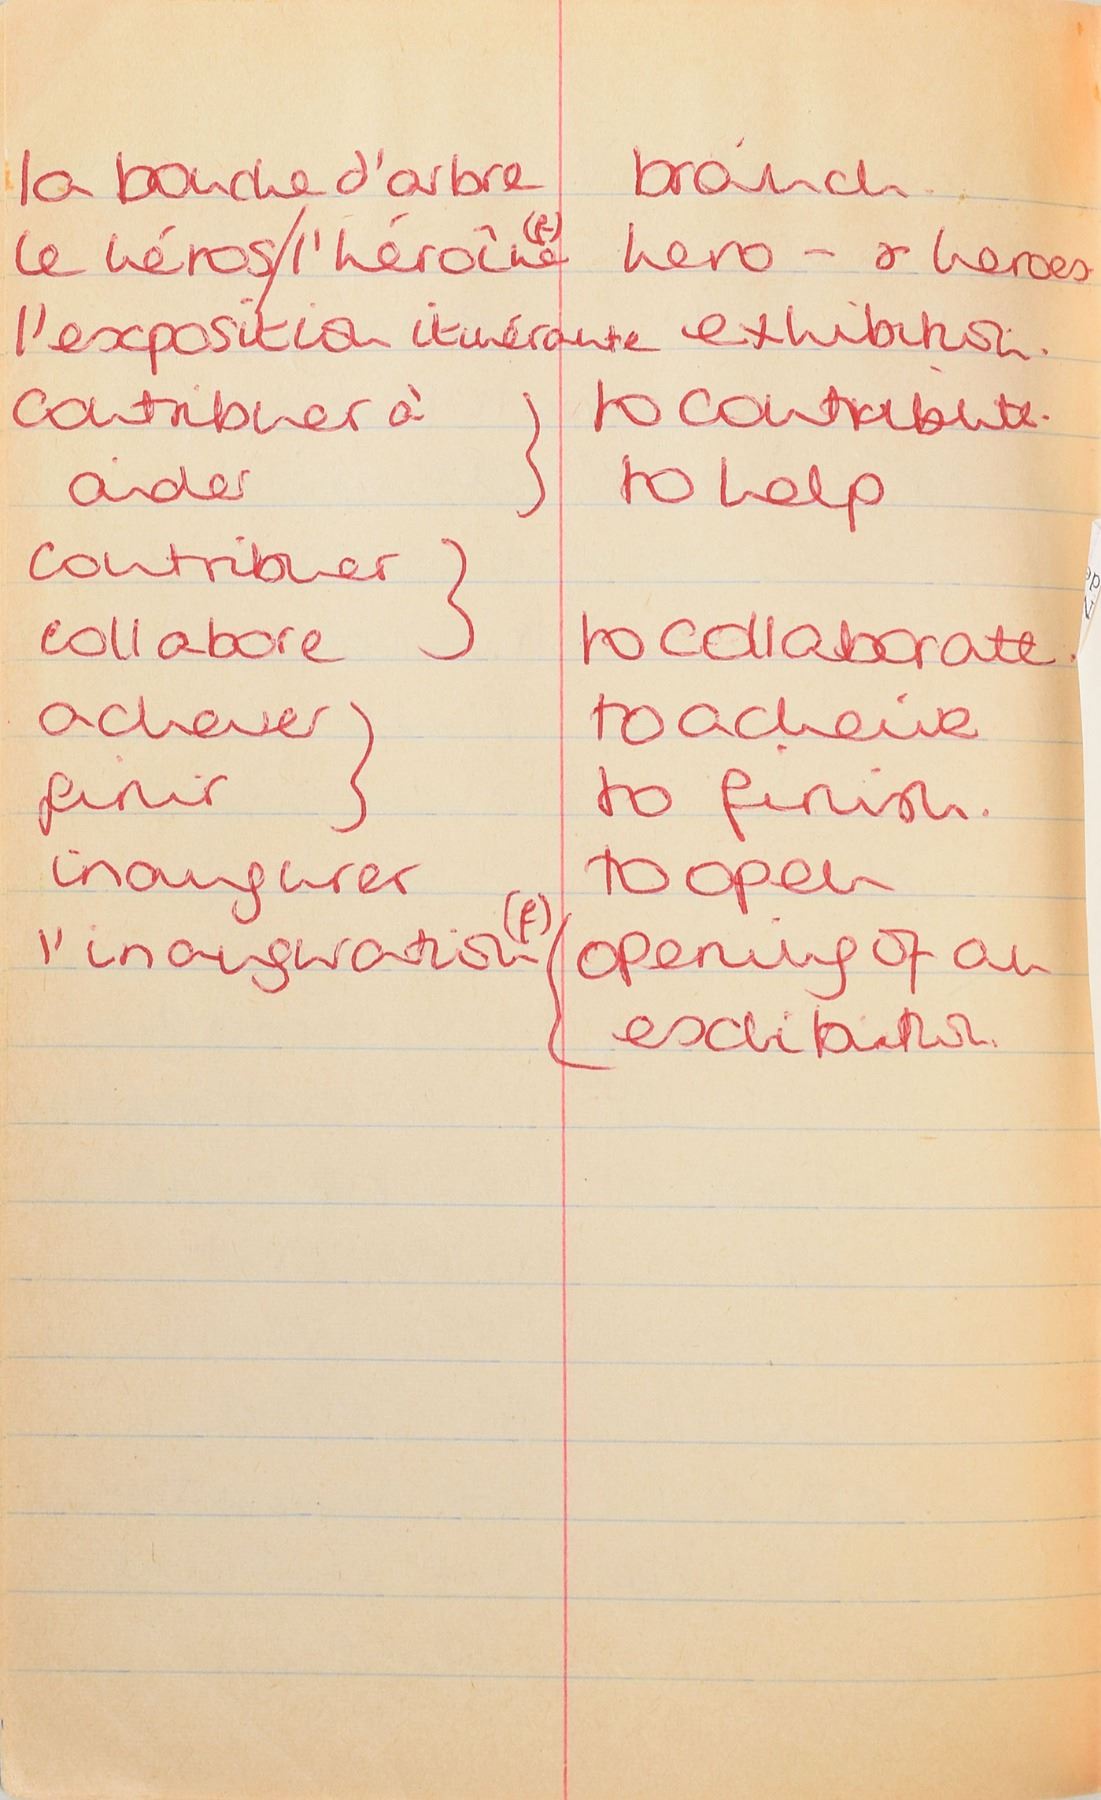 la bouche d'arbre branch.
le héros/l'héroîne (f) hero - & heroes
l'exposition itinérante exhibition.
contribuer à } to contribute.
aider to help
contribuer }
collabore to collaborate.
achever } to acheive
finir to finish.
inaugurer to open
l'inauguration (f) { opening of an
exchibition.